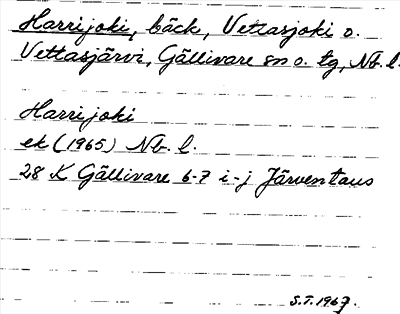 Harrijoki, bäck, Vettasjoki o.
Vettasjärvi, Gällivare sn o. tg, Nb. l.
Harrijoki
ek (1965) Nb. l.
28 K Gällivare 6-7 i-j Järventaus
S.T. 1967.